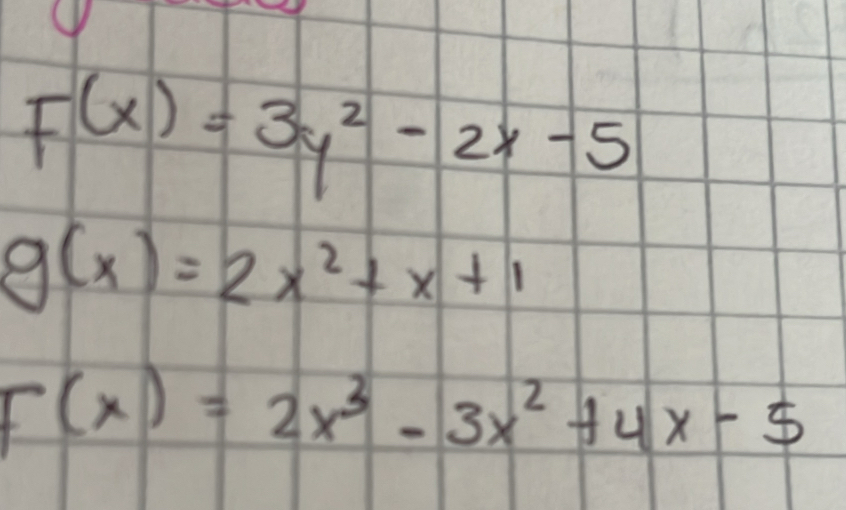 F(x) = 3y² - 2x - 5
g(x) = 2x² + x + 1
F(x) = 2x³ - 3x² + 4x - 5